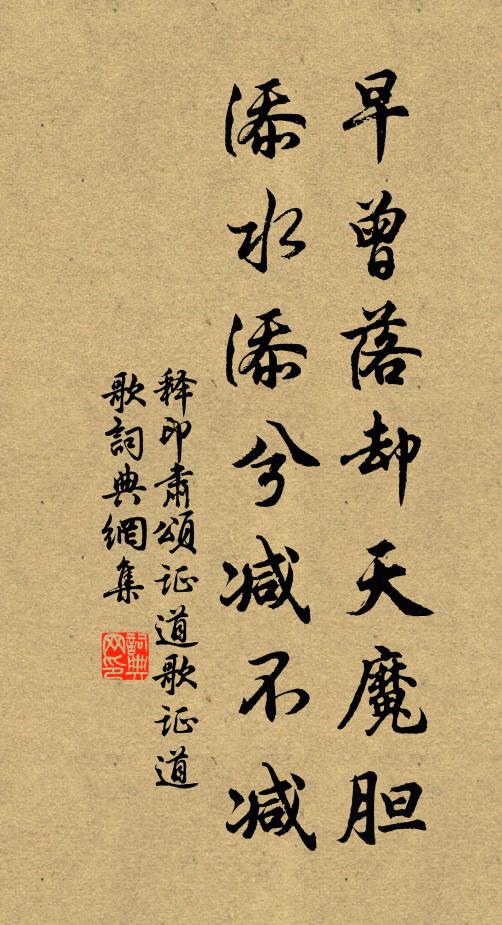 早曾落却天魔胆
添水添兮减不减
释印肃颂证道歌证道
歌詞典網集
詞典网印